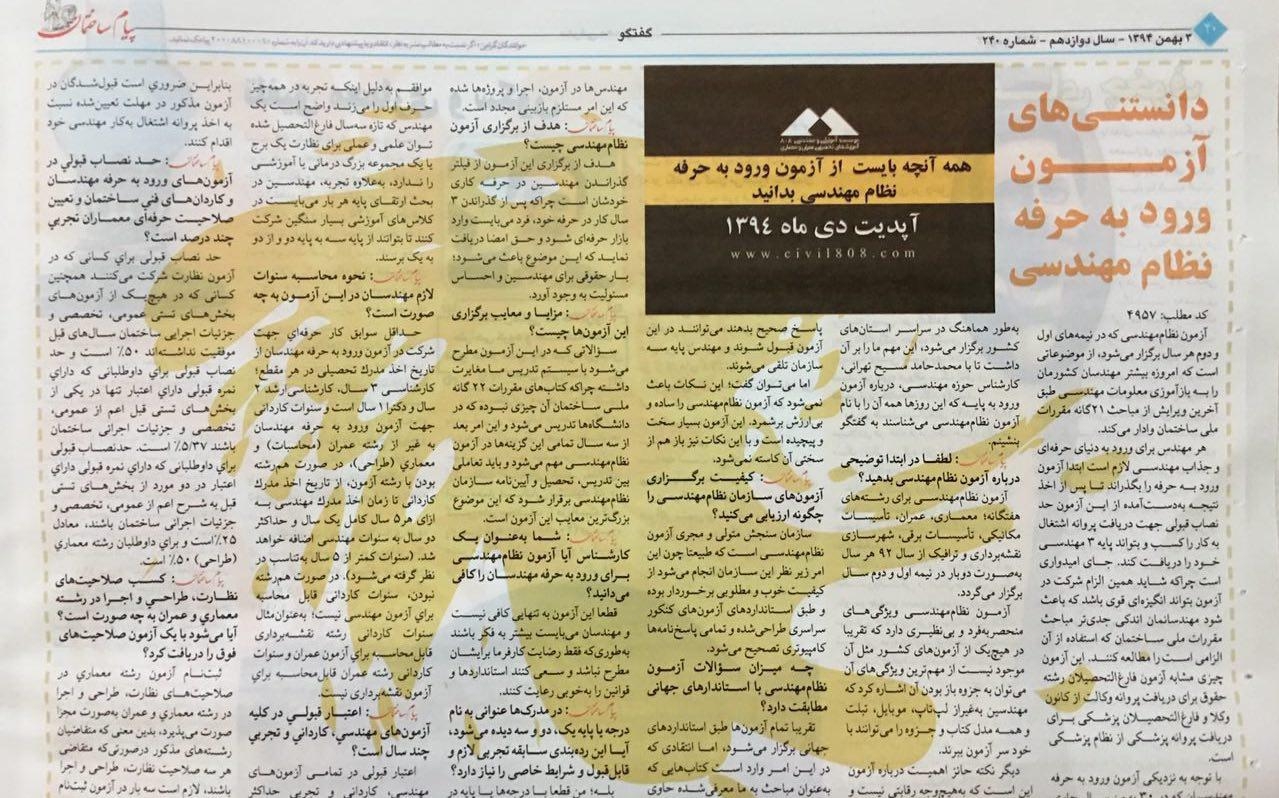 ۲۰
۲ بهمن ۱۳۹۴ - سال دوازدهم - شماره ۲۴۰
گفتگو
پیام ساختمان
دانستنی‌های
آزمون
ورود به حرفه
نظام مهندسی
همه آنچه بایست از آزمون ورود به حرفه
نظام مهندسی بدانید
آپدیت دی ماه ۱۳۹۴
www.civil808.com
کد مطلب: ۴۹۵۷
آزمون نظام‌مهندسی که در نیمه‌های اول
و دوم هر سال برگزار می‌شود، از موضوعاتی
است که امروزه بیشتر مهندسان کشورمان
را به بازآموزی معلومات مهندسی طبق
آخرین ویرایش از مباحث ۲۱گانه مقررات
ملی ساختمان وادار می‌کند.
هر مهندس برای ورود به دنیای حرفه‌ای
و جذاب مهندسی لازم است ابتدا آزمون
ورود به حرفه را بگذراند تا پس از اخذ
نتیجه به‌دست‌آمده از این آزمون حد
نصاب قبولی جهت دریافت پروانه اشتغال
به کار را کسب و بتواند پایه ۳ مهندسی
خود را دریافت کند. جای امیدواری
است چراکه شاید همین الزام شرکت در
آزمون بتواند انگیزه‌ای قوی باشد که باعث
شود مهندسانمان اندکی جدی‌تر مباحث
مقررات ملی ساختمان که استفاده از آن
الزامی است را مطالعه کنند. این آزمون
چیزی مشابه آزمون فارغ‌التحصیلان رشته
حقوق برای دریافت پروانه وکالت از کانون
وکلا و فارغ‌التحصیلان پزشکی برای
دریافت پروانه پزشکی از نظام پزشکی
است.
با توجه به نزدیکی آزمون ورود به حرفه
به‌طور هماهنگ در سراسر استان‌های
کشور برگزار می‌شود، این مهم ما را بر آن
داشت تا با محمدحامد مسیح تهرانی،
کارشناس حوزه مهندسی، درباره آزمون
ورود به پایه که این روزها همه آن را با نام
آزمون نظام‌مهندسی می‌شناسند به گفتگو
بنشینم.
پیام ساختمان: لطفا در ابتدا توضیحی
درباره آزمون نظام مهندسی بدهید؟
آزمون نظام‌مهندسی برای رشته‌های
هفتگانه؛ معماری، عمران، تأسیسات
مکانیکی، تأسیسات برقی، شهرسازی
نقشه‌برداری و ترافیک از سال ۹۲ هر سال
به‌صورت دوبار در نیمه اول و دوم سال
برگزار می‌گردد.
آزمون نظام‌مهندسی ویژگی‌های
منحصربه‌فرد و بی‌نظیری دارد که تقریبا
در هیچ‌یک از آزمون‌های کشور مثل آن
موجود نیست از مهم‌ترین ویژگی‌های آن
می‌توان به جزوه باز بودن آن اشاره کرد که
مهندسین به‌غیراز لپ‌تاپ، موبایل، تبلت
و همه مدل کتاب و جزوه را می‌توانند با
خود سر آزمون ببرند.
دیگر نکته حائز اهمیت درباره آزمون
این است که به‌هیچ‌وجه رقابتی نیست و
پاسخ صحیح بدهند می‌توانند در این
آزمون قبول شوند و مهندس پایه سه
سازمان تلقی می‌شوند.
اما می‌توان گفت؛ این نکات باعث
نمی‌شود که آزمون نظام‌مهندسی را ساده و
بی‌ارزش برشمرد. این آزمون بسیار سخت
و پیچیده است و با این نکات نیز باز هم از
سختی آن کاسته نمی‌شود.
پیام ساختمان: کیفیت برگزاری
آزمون‌های سازمان نظام‌مهندسی را
چگونه ارزیابی می‌کنید؟
سازمان سنجش متولی و مجری آزمون
نظام‌مهندسی است که طبیعتا چون این
امر زیر نظر این سازمان انجام می‌شود از
کیفیت خوب و مطلوبی برخوردار بوده
و طبق استانداردهای آزمون‌های کنکور
سراسری طراحی‌شده و تمامی پاسخ‌نامه‌ها
کامپیوتری تصحیح می‌شود.
چه میزان سؤالات آزمون
نظام‌مهندسی با استاندارهای جهانی
مطابقت دارد؟
تقریبا تمام آزمون‌ها طبق استانداردهای
جهانی برگزار می‌شود، اما انتقادی که
در این امر وارد است کتاب‌هایی که
به‌عنوان مباحث به ما معرفی‌شده حاوی
مهندس‌ها در آزمون، اجرا و پروژه‌ها شده
که این امر مستلزم بازبینی مجدد است.
پیام ساختمان: هدف از برگزاری آزمون
نظام‌مهندسی چیست؟
هدف از برگزاری این آزمون از فیلتر
گذراندن مهندسین در حرفه کاری
خودشان است چراکه پس از گذراندن ۳
سال کار در حرفه خود، فرد می‌بایست وارد
بازار حرفه‌ای شود و حق امضا دریافت
نماید که این موضوع باعث می‌شود؛
بار حقوقی برای مهندسین و احساس
مسئولیت به وجود آورد.
پیام ساختمان: مزایا و معایب برگزاری
این آزمون‌ها چیست؟
سؤالاتی که در این آزمون مطرح
می‌شود با سیستم تدریس ما مغایرت
داشته چراکه کتاب‌های مقررات ۲۲ گانه
ملی ساختمان آن چیزی نبوده که در
دانشگاه‌ها تدریس می‌شود و این امر بعد
از سه سال تمامی این گزینه‌ها در آزمون
نظام‌مهندسی مهم می‌شود و باید تعاملی
بین تدریس، تحصیل و آیین‌نامه سازمان
نظام‌مهندسی برقرار شود که این موضوع
بزرگ‌ترین معایب این آزمون است.
پیام ساختمان: شما به‌عنوان یک
کارشناس آیا آزمون نظام‌مهندسی
برای ورود به حرفه مهندسان را کافی
می‌دانید؟
قطعا این آزمون به تنهایی کافی نیست
و مهندسان می‌بایست بیشتر به فکر باشند
به‌طوری‌که فقط رضایت کارفرما برایشان
مطرح نباشد و سعی کنند استانداردها و
قوانین را به‌خوبی رعایت کنند.
پیام ساختمان: در مدرک‌ها عنوانی به نام
درجه یا پایه یک، دو و سه دیده می‌شود،
آیا این رده‌بندی سابقه تجربی لازم و
قابل‌قبول و شرایط خاصی را نیاز دارد؟
بله؛ من قطعا با درجه‌ها یا پایه در
موافقم به دلیل اینکه تجربه در همه‌چیز
حرف اول را می‌زند واضح است یک
مهندس که تازه سه‌سال فارغ‌التحصیل شده
توان علمی و عملی برای نظارت یک برج
یا یک مجموعه بزرگ درمانی یا آموزشی
را ندارد، به‌علاوه تجربه، مهندسین در
بحث ارتقای پایه هر بار می‌بایست در
کلاس‌های آموزشی بسیار سنگین شرکت
کنند تا بتوانند از پایه سه به پایه دو و از دو
به یک برسند.
پیام ساختمان: نحوه محاسبه سنوات
لازم مهندسان در این آزمون به چه
صورت است؟
حداقل سوابق کار حرفه‌ای جهت
شرکت در آزمون ورود به حرفه مهندسان از
تاریخ اخذ مدرک تحصیلی در هر مقطع؛
کارشناسی ۳ سال، کارشناسی ارشد ۲
سال و دکترا ۱ سال است و سنوات کاردانی
جهت آزمون ورود به حرفه مهندسان
به غیر از رشته عمران (محاسبات) و
معماری (طراحی)، در صورت هم‌رشته
بودن با رشته آزمون، از تاریخ اخذ مدرك
کاردانی تا زمان اخذ مدرك مهندسی به
ازای هر ۵ سال کامل یک سال و حداکثر
دو سال به سنوات مهندسی اضافه خواهد
شد. (سنوات کمتر از ۵ سال به‌تناسب در
نظر گرفته می‌شود). در صورت هم‌رشته
نبودن، سنوات کاردانی قابل محاسبه
برای آزمون مهندسی نیست؛ به‌عنوان‌مثال
سنوات کاردانی رشته نقشه‌برداری
قابل‌محاسبه برای آزمون عمران و سنوات
کاردانی رشته عمران قابل‌محاسبه برای
آزمون نقشه‌برداری نیست.
پیام ساختمان: اعتبار قبولی در کلیه
آزمون‌های مهندسی، کاردانی و تجربی
چند سال است؟
اعتبار قبولی در تمامی آزمون‌های
مهندسی، کاردانی و تجربی حداکثر
بنابراین ضروری است قبول‌شدگان در
آزمون مذکور در مهلت تعیین‌شده نسبت
به اخذ پروانه اشتغال به‌کار مهندسی خود
اقدام کنند.
پیام ساختمان: حد نصاب قبولی در
آزمون‌های ورود به حرفه مهندسان
و کاردان‌های فنی ساختمان و تعیین
صلاحیت حرفه‌ای معماران تجربی
چند درصد است؟
حد نصاب قبولی برای کسانی که در
آزمون نظارت شرکت می‌کنند همچنین
کسانی که در هیچ‌یک از آزمون‌های
بخش‌های تستی عمومی، تخصصی و
جزئیات اجرایی ساختمان سال‌های قبل
موفقیت نداشته‌اند ۵۰٪ است و حد
نصاب قبولی برای داوطلبانی که دارای
نمره قبولی دارای اعتبار تنها در یکی از
بخش‌های تستی قبل اعم از عمومی،
تخصصی و جزئیات اجرانی ساختمان
باشند ۳۷/۵٪ است. حدنصاب قبولی
برای داوطلبانی که دارای نمره قبولی دارای
اعتبار در دو مورد از بخش‌های تستی
قبل به شرح اعم از عمومی، تخصصی و
جزئیات اجرانی ساختمان باشند، معادل
۲۵٪ است و برای داوطلبان رشته معماری
(طراحی) ۵۰٪ است.
پیام ساختمان: کسب صلاحیت‌های
نظارت، طراحی و اجرا در رشته
معماری و عمران به چه صورت است؟
آیا می‌شود با یک آزمون صلاحیت‌های
فوق را دریافت کرد؟
ثبت‌نام آزمون رشته معماری در
صلاحیت‌های نظارت، طراحی و اجرا و
در رشته معماری و عمران به‌صورت مجزا
صورت می‌پذیرد، بدین معنی که متقاضیان
رشته‌های مذکور درصورتی‌که متقاضی
هر سه صلاحیت نظارت، طراحی و اجرا
باشند، لازم است سه بار در آزمون ثبت‌نام